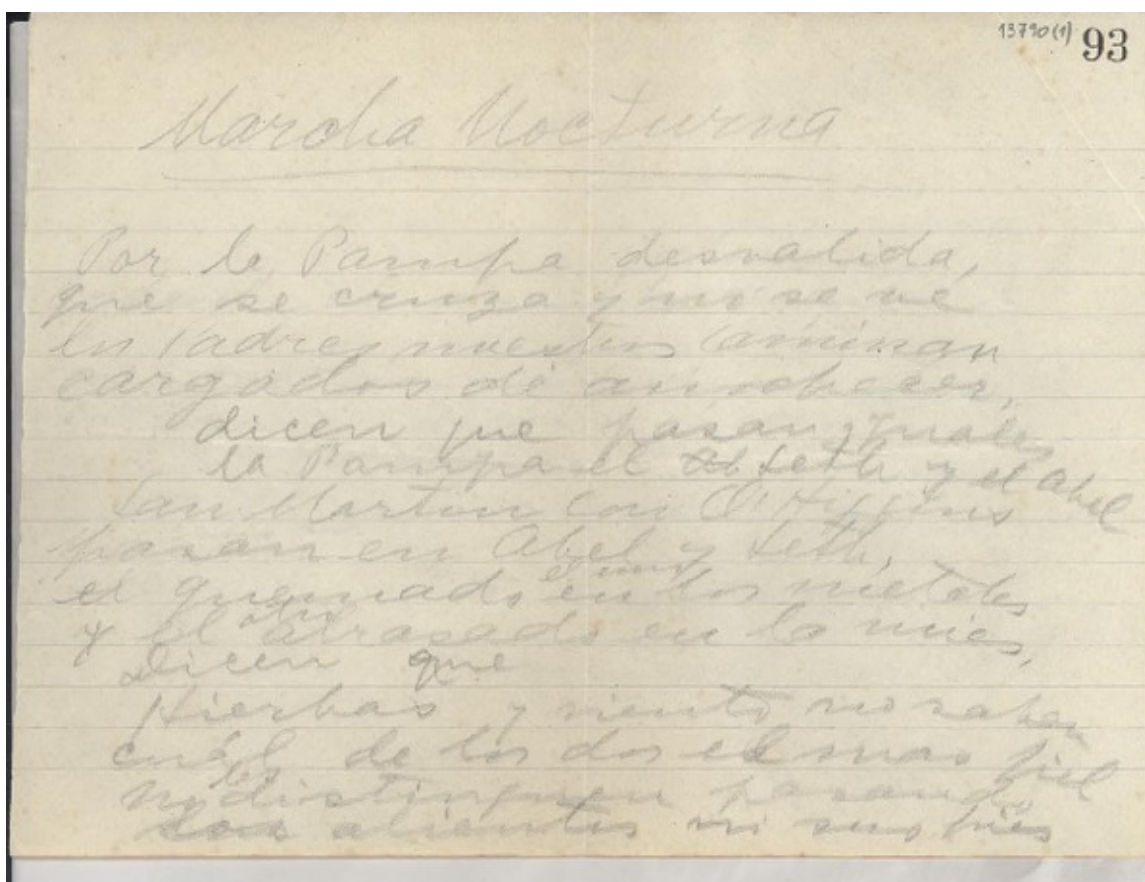 13790(1) 93
Marcha Nocturna
Por la Pampa desvalida,
que se cruza y no se ve
los Padres nuestros caminan
cargados de anochecer,
dicen que pasan iguales
la Pampa el Seth y el Abel
San Martin con O'Higgins
pasan en Abel y Seth,
el quemado en los metales
el uno
y el atrasado en la mies,
otro
Dicen que
Hierbas y viento no saben
cuál de los dos es mas fiel
no distinguen pasando
los
sus alientos ni sus pies